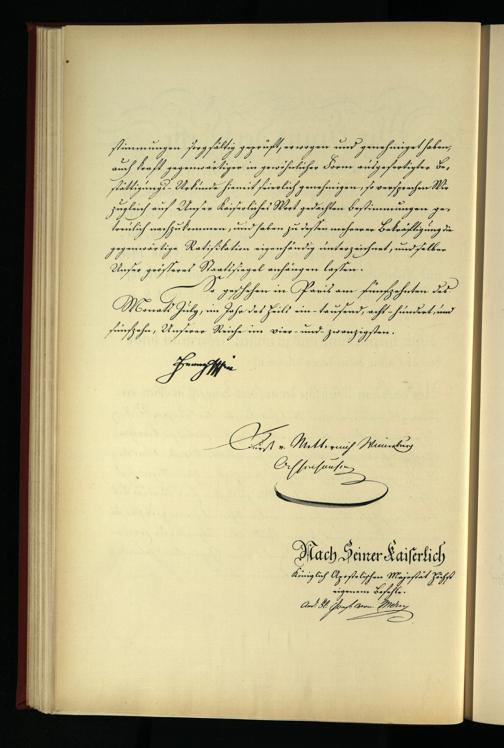 stimmungen sorgfältig geprüft, erwogen und genehmiget haben,
auch kraft gegenwärtiger in gewöhnlicher Form ausgefertigter Be-
stättigungs-Urkunde hiemit feierlich genehmigen, so versprechen Wir
zugleich auf Unser Kaiserliches Wort gedachten Bestimmungen ge-
treulich nachzukommen, und haben zu dessen mehrerer Bekräftigung die
gegenwärtige Ratification eigenhändig unterzeichnet, und selber
Unser grösseres Staatssiegel anhängen lassen.
So geschehen in Paris am fünfzehnten des
Monats July, im Jahr des Heils ein-tausend, acht-hundert, und
fünfzehn, Unserer Reiche im vier- und zwanzigsten.
Franz
Fürst v. Metternich Winneburg
Ochsenhausen
Nach Seiner Kaiserlich
Königlich Apostolischen Majestät Höchst
eigenem Befehle.